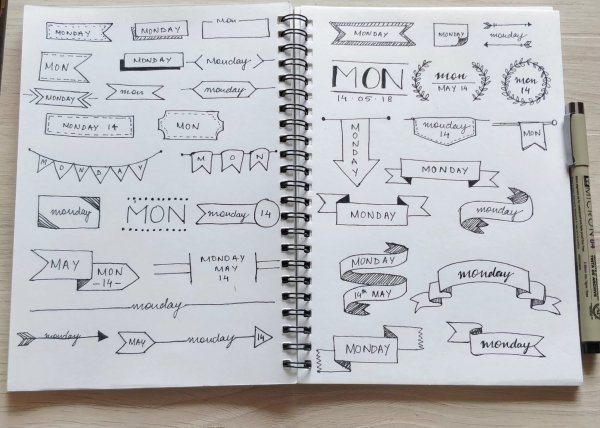 MONDAY
MONDAY
mon
MON
MONDAY
Monday
MONDAY
mon
monday
MONDAY 14
MON
MONDAY
MON
monday
MON
monday 14
MAY
MON
-14-
MONDAY
MAY
14
monday
monday
MAY
monday
14
MONDAY
MONDAY
monday
MON
14·05·18
mon
MAY 14
mon
14
MONDAY
monday
14
MON
MONDAY
MONDAY
monday
MONDAY
14th MAY
monday
MONDAY
monday